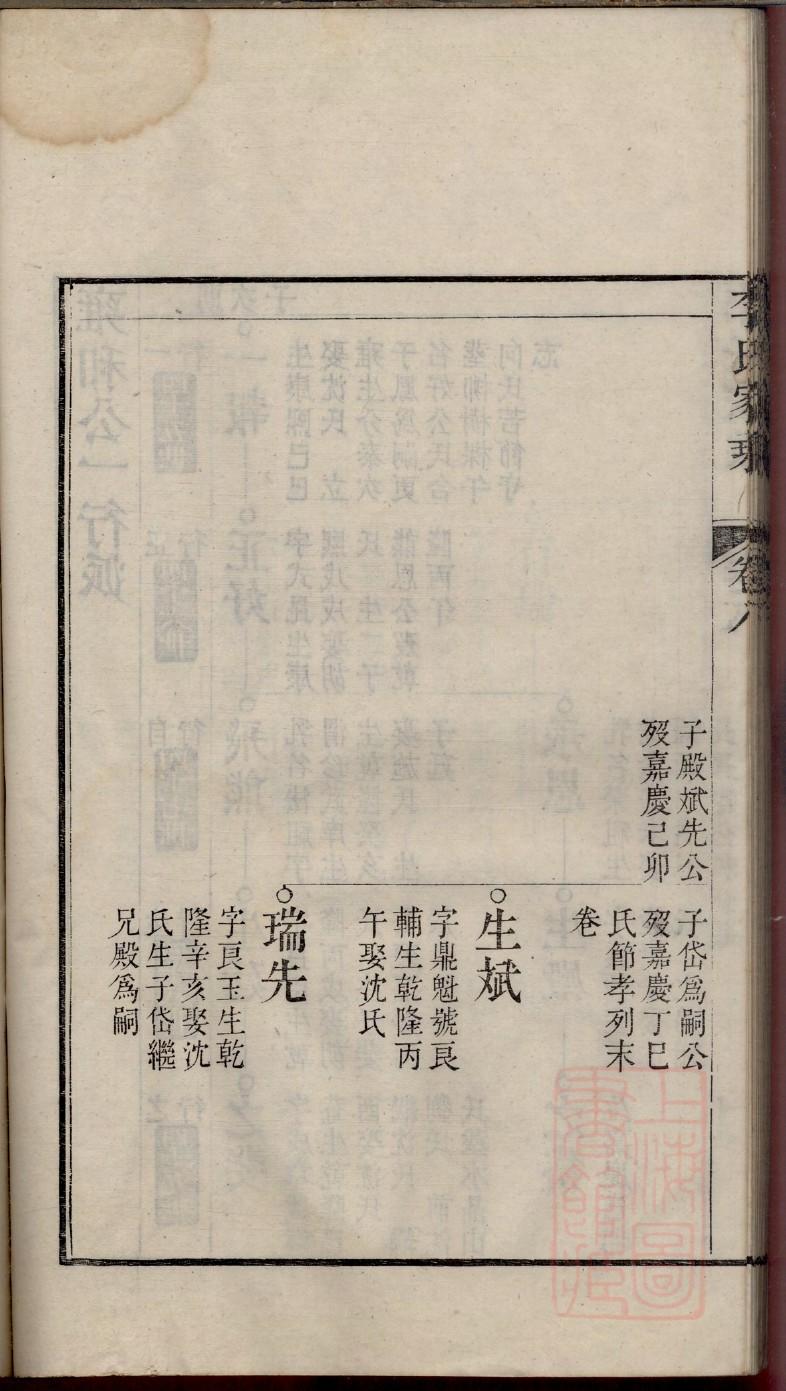 李氏家乘
卷八
子殿斌先公
歿嘉慶己卯
子岱爲嗣公
歿嘉慶丁巳
氏節孝列末
卷
生斌
字鼎魁號良
輔生乾隆丙
午娶沈氏
瑞先
字良玉生乾
隆辛亥娶沈
氏生子岱繼
兄殿爲嗣
上海圖
書館藏